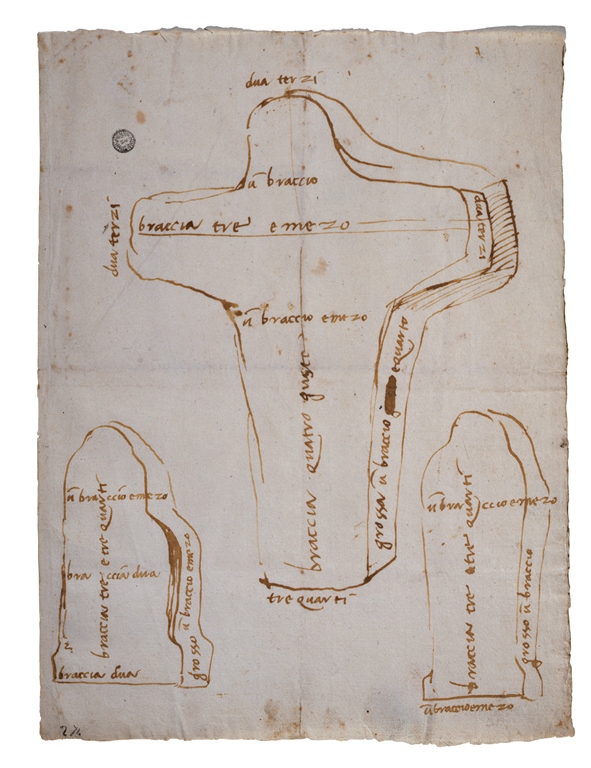 dua terzi
ū braccio
braccia tre e mezo
dua terzi
dua terzi
ū braccio e mezo
braccia quatro guste
grosso ū braccio equarto
tre quarti
ū braccio e mezo
braccia tre e tre quarti
braccia dua
grosso ū braccio e mezo
braccia dua
ū braccio e mezo
braccia tre e tre quarti
grosso ū braccio
ū braccio e mezo